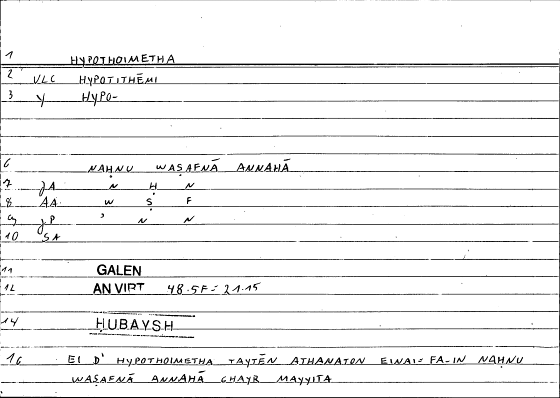 1 HYPOTHOIMETHA
2 VLC HYPOTITHĒMI
3 Y HYPO-
6 NAḤNU WAṢAFNĀ ANNAHĀ
7 JA N Ḥ N
8 AA W Ṣ F
9 JP ' N N
10 SA
11 GALEN
12 AN VIRT 48.5F = 21.15
14 ḤUBAYSH
16 EI D' HYPOTHOIMETHA TAYTĒN ATHANATON EINAI = FA-IN NAḤNU
WAṢAFNĀ ANNAHĀ GHAYR MAYYITA